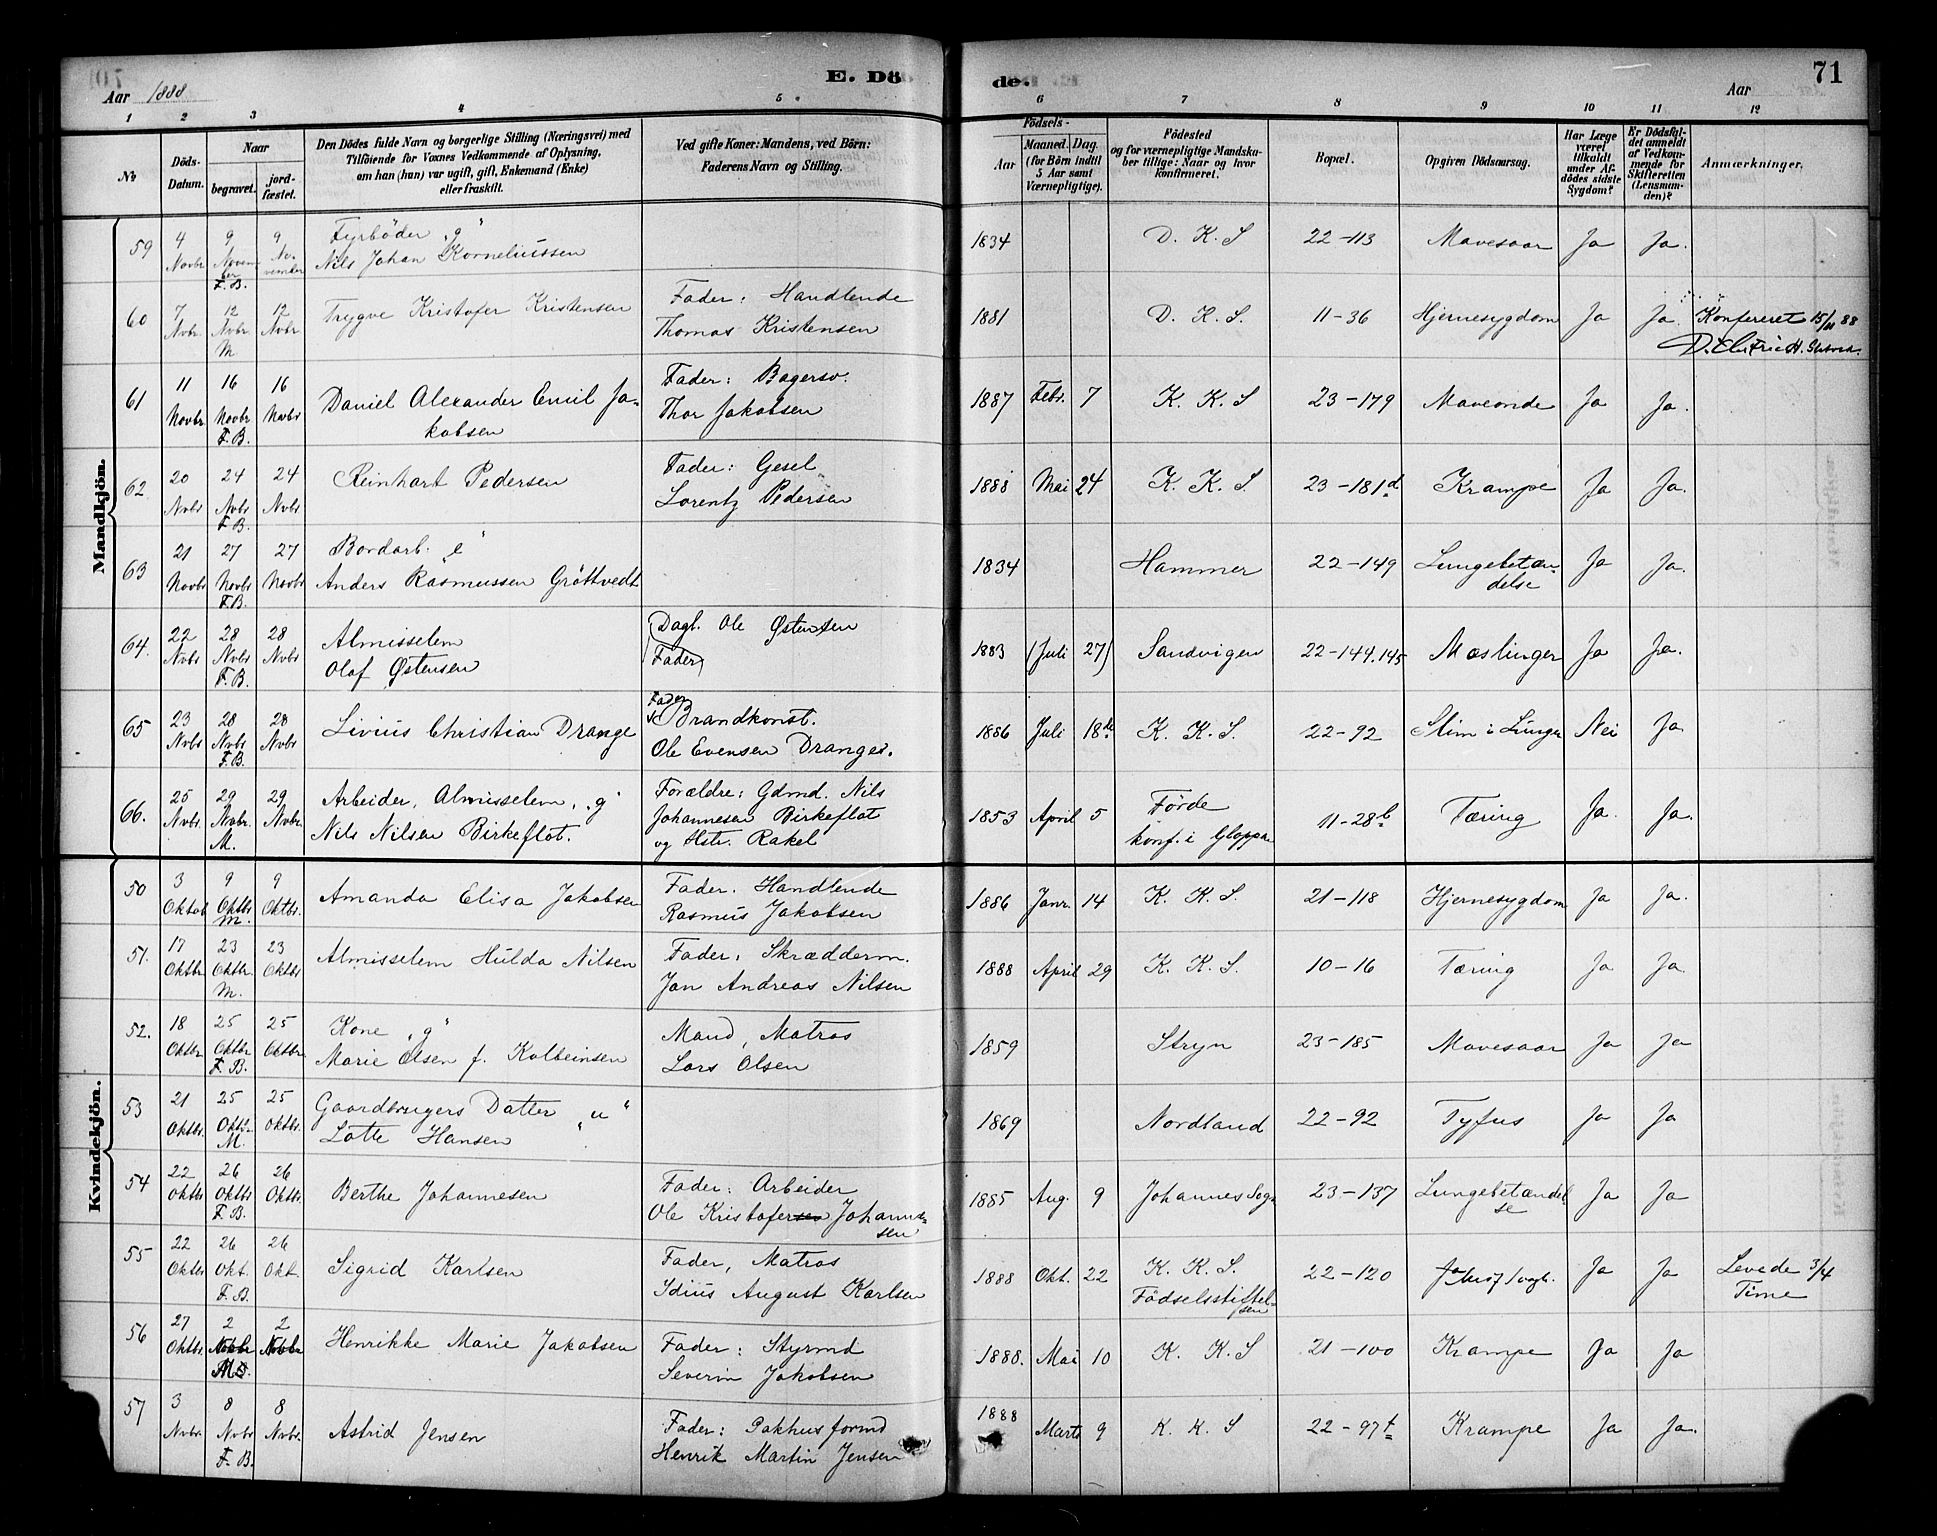 E. Döde.
71
Aar 1888
Aar
1 2 3 4 5 6 7 8 9 10 11 12
№
Döds-Datum.
Naar
begravet.
jord-fæstet.
Den Dödes fulde Navn og borgerlige Stilling (Næringsvei) med
Tilföiende for Voxnes Vedkommende af Oplysning,
om han (hun) var ugift, gift, Enkemand (Enke)
eller fraskilt.
Ved gifte Koner: Mandens, ved Börn:
Faderens Navn og Stilling.
Födsels-
Aar
Maaned. Dag.
(for Börn indtil
5 Aar samt
Værnepligtige).
Födested
og for værnepligtige Mandska-
ber tillige: Naar og hvor
konfirmeret.
Bopæl.
Opgiven Dödsaarsag.
Har Læge
været
tilkaldt
under Af-
dödes sidste
Sygdom?
Er Dödsfal-
det anmeldt
af Vedkom-
mende for
Skifteretten
(Lensman-
den)?
Anmærkninger.
Mandkjön.
59 4 Novbr 9 November F.B. 9 November Fyrböder "g" Nils Johan Korneliussen 1834 D. K. S 22-113 Mavesaar Ja Ja.
60 7 Nvbr. 12 Nvbr M. 12 Nvbr Trygve Kristofer Kristensen Fader: Handlende Thomas Kristensen 1881 D. K. S. 11-36 Hjernesygdom Ja Ja Konfereret 15/11 88
61 11 Novbr. 16 Novbr F.B. 16 Novbr Daniel Alexander Emil Jakobsen Fader: Bagersv. Thor Jakobsen 1887 Febr. 7 K. K. S 23-179 Maveonde Ja Ja.
62 20 Nvbr 24 Nvbr F.B. 24 Nvbr Reinhart Pedersen Fader: Gesel Lorentz Pedersen 1888 Mai 24 K. K. S. 23-181d Krampe Ja Ja.
63 21 Novbr 27 Novbr F.B. 27 Novbr Bordarb. "e" Anders Rasmussen Gröttvedt 1834 Hammer 22-149 Lungebetændelse Ja Ja.
64. 22 Nvbr 28 Nvbr F.B. 28 Nvbr Almisselem Olaf Østensen Dagl. Ole Østensen (Fader) 1883 (Juli 27) Sandvigen 22-144.145 Mæslinger Ja Ja.
65 23 Nvbr. 28 Nvbr F.B. 28 Nvbr Livius Christian Drange Fader Brandkonst. Ole Evensen Dranger. 1886 Juli 18de K. K. S. 22-92 Slim i Lunger Nei Ja
66. 25 Nvbr. 29 Nvbr. M. 29 Nvbr. Arbeider, Almisselem, "g" Nils Nilsen Birkeflot. Forældre: Gdmd. Nils Johannesen Birkeflot og Hstr. Rakel 1853 April 5 Förde konf. i Gloppen 11-28b Tæring Ja. Ja.
Kvindekjön.
50 3 Oktob 9 Oktbr M. 9 Oktbr. Amanda Elisa Jakobsen Fader. Handlende Rasmus Jakobsen 1886 Janr. 14 K. K. S. 21-118 Hjernesygdom Ja Ja.
51. 17 Oktbr. 23 Oktbr. M. 23 Oktbr Almisselem Hulda Nilsen Fader, Skrædderm. Jan Andreas Nilsen 1888 April 29 K. K. S. 10-16 Tæring Ja Ja.
52. 18 Oktbr. 25 Oktbr F.B. 25 Oktbr. Kone "g" Marie Olsen f. Kolbeinsen Mand, Matros Lars Olsen 1859 Stryn 23-185 Mavesaar Ja Ja
53 21 Oktbr. 25 Oktbr. M. 25 Oktbr. Gaardbrugers Datter "u" Lotte Hansen 1869 Nordland 22-92 Tyfus Ja Ja
54 22 Oktbr 26 Oktbr F.B. 26 Oktbr. Berthe Johannesen Fader: Arbeider Ole Kristofersen Johannesen 1885 Aug. 9 Johannes Sogn 23-137 Lungebetændelse Ja Ja
55 22 Oktbr 26 Okt. F.B. 26 Okt. Sigrid Karlsen Fader, Matros Idius August Karlsen 1888 Okt. 22 K. K. S. Födselsstiftelsen 22-120 Ja Ja Levede 3/4 Time
56 27 Oktbr. 2 Novbr 2 Novbr Henrikke Marie Jakobsen Fader: Styrmd Severin Jakobsen 1888. Mai 10 K. K. S 21-100 Krampe Ja Ja
57 3 Nvbr. 8 Nvbr F.B. 8 Nvbr. Astrid Jensen Fader: Pakhusformd Henrik Martin Jensen 1888 Marts 9 K. K. S 22-97t Krampe Ja Ja.